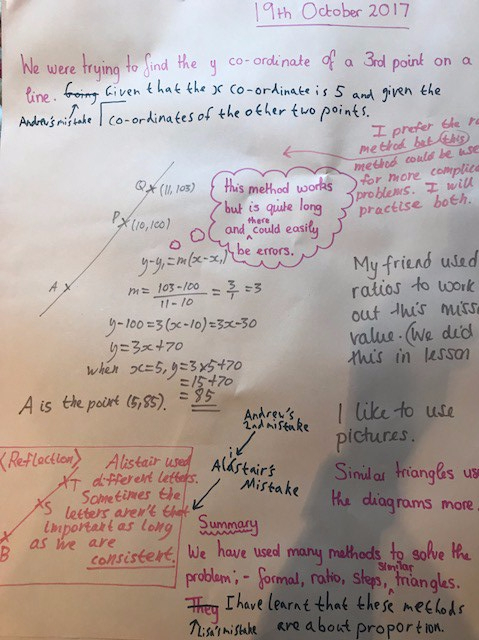 19th October 2017
We were trying to find the y co-ordinate of a 3rd point on a
line. Going Given that the x co-ordinate is 5 and given the
Andrew's mistake co-ordinates of the other two points.
I prefer the
method but this
method could be
for more
problems. I will
practise both.
Q (11,103)
P (10,100)
A
this method works
but is quite long
and there could easily
be errors.
y-y₁=m(x-x₁)
m = 103-100 / 11-10 = 3/1 = 3
y-100=3(x-10)=3x-30
y=3x+70
when x=5, y=3x5+70
=15+70
=85
A is the point (5,85).
My friend used
ratios to work
out this
value. (We did
this in lesson
I like to use
pictures.
Similar triangles
the diagrams more
Andrew's
2nd mistake
Alastair's
i
Mistake
(Reflection)
Alistair used
different letters.
Sometimes the
letters aren't that
important as long
as we are
consistent.
T
S
B
Summary
We have used many methods to solve the
problem; - formal, ratio, steps, similar triangles.
They I have learnt that these methods
Lisa's mistake are about proportion.